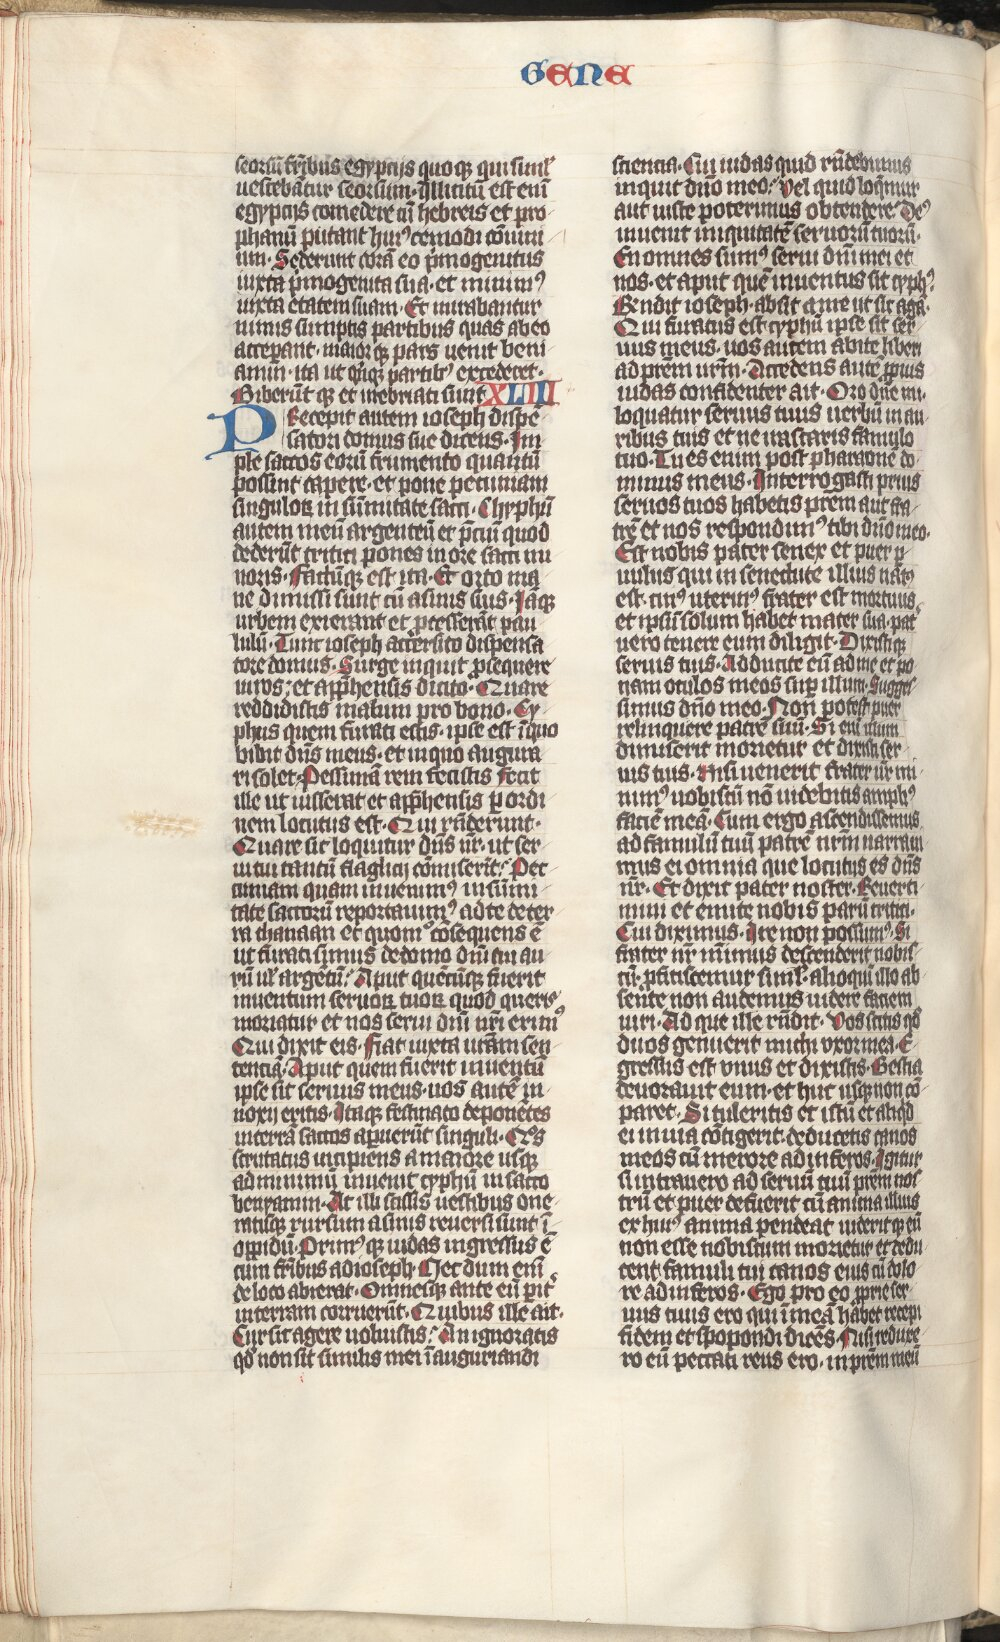 GENE
seorsū fr̄ibus egypcijs quoqꝫ qui simł
uescebātur seorsum· Illicitū est enī
egypcijs comedere cū hebreis et pro
phanū putant huiꝰcemodi cōuiui
um· Sederunt corā eo p̄mogenitus
iuxta p̄mogenita sua· et minimꝰ
iuxta etatem suam· Et mirabantur
nimis sumptis partibus quas ab eo
acceperant· maiorqꝫ pars uenit beni
amin· ita ut qͥnqꝫ partibꝰ excederet·
Biberūt qꝫ et inebriati sunt XLIIII
PRecepit autem ioseph dispē
satori domus sue dicens· Im
ple saccos eorū frumento quantū
possint capere· et pone pecuniam
singuloꝝ in sūmitate sacci· Chyphū
autem meū argenteū et p̄ciū quod
dederūt tritici pones in ore sacci iu
nioris· Factūqꝫ est ita· Et orto ma
ne dimissi sunt cū asinis suis· Iāqꝫ
urbem exierant et ꝓcesserāt pau
lulū· Tunc ioseph accersito dispensa
tore domus· Surge inquit ꝓsequere
uiros· et app̄hensis dicito· Quare
reddidistis malum pro bono· Cy
phus quem furati estis· ipse est ī quo
bibit dn̄s meus· et in quo augura
ri solet· Pessimā rem fecistis Fecit
ille ut iusserat et app̄hensis ꝑ ordi
nem locutus est· Qui rn̄derunt·
Quare sic loquitur dn̄s nr̄· ut ser
ui tui tantū flagicij cōmiserīt? Pec
cuniam quam inuenimꝰ in sūmi
tate saccorū reportauimꝰ ad te de ter
ra chanaan et quomᵒ cōsequens ē
ut furati simus de domo dn̄i tui au
rū uł argētū? Aput quēcūqꝫ fuerit
inuentum seruoꝝ tuoꝝ quod queris
moriatur et nos serui dn̄i nr̄i erimꝰ
Qui dixit eis· Fiat iuxta ur̄am sen
tenciā· Aput quem fuerit inuentū
ipse sit seruus meus· uos autē in
noxij eritis· Itaqꝫ festinato deponētes
in terrā saccos aperuerūt singuli· Qͦs
scrutatus incipiens a maiore usqꝫ
ad minimū inuenit cyphū in sacco
benyamin· At illi scissis uestibus one
ratisqꝫ rursum asinis reuersi sunt ī
oppidū· Primꝰqꝫ iudas ingressus ē
cum fr̄ibus ad ioseph· Nec dum enī
de loco abierat· Omnesqꝫ ante eū pͥit
in terram corruerūt· Quibus ille ait·
Cur sic agere uoluistis? An ignoratis
qd̛ non sit similis mei ī auguriandi
sciencia· Cui iudas quid rn̄debimus
inquit dn̄o meo? Vel quid loq̄mur
aut iuste poterimus obtendere? Deꝰ
inuenit iniquitatē seruorū tuorū·
En omnes sumꝰ serui dn̄i mei et
nos· et aput quē inuentus sit cyphꝰ
Rn̄dit ioseph· absit a me ut sic agā·
Qui furatus est cyphū ipse sit ser
uus meus· uos autem abite liberi
ad prem ur̄m· Accedens autē ꝓpius
iudas confidenter ait· Oro dn̄e mi·
loquatur seruus tuus uerbū in au
ribus tuis et ne irascaris famulo
tuo· Tu es enim post pharaonē do
minus meus· Interrogasti prius
seruos tuos habetis prēm aut fra
trē et nos respondimꝰ tibi dn̄o meo·
Est nobis pater senex et puer ꝑ
uulus qui in senectute illius natꝰ
est· cuiꝰ uterinꝰ frater est mortuus
et ipsū solum habet mater sua· patͬ
uero tenere eum diligit· Dixistiqꝫ
seruis tuis· Adducite eū ad me et po
nam oculos meos suꝑ illum· Sugges
simus dn̄o meo· Non potest puer
relinquere patrē suū· Si enī illum
dimiserit morietur et dixisti ser
uis tuis· Nisi uenerit frater ur̄ mi
nimꝰ uobiscū nō uidebitis ampliꝰ
faciē meā· Cum ergo ascendissemus
ad famulū tuū patrē nr̄m narraui
mus ei omnia que locutus es dn̄s
nr̄· Et dixit pater noster· Reuerti
mini et emite nobis parū tritici·
Cui diximus· Ire non possumꝰ· Si
frater nr̄ mīimus descenderit nobis
cū· ꝓficiscemur simł· alioqui illo ab
sente non audemus uidere faciem
uiri· Ad que ille rn̄dit· Vos scitis qd̛
duos genuerit michi vxor mea· E
gressus est vnus et dixistis· Bestia
deuorauit eum· et huc usqꝫ non cō
paret· Si tuleritis et istū et aliqͥd
ei in uia cōtigerit· deducetis canos
meos cū merore ad inferos· Igitur
si intrauero ad seruū tuū prēm nos
trū et puer defuerit cū anima illius
ex huiꝰ anima pendeat uideritqꝫ eū
non esse nobiscum morietur et dedu
cent famuli tui canos eius cū dolo
re ad inferos· Ego pro eo ꝓprie ser
uus tuus ero qui ī meā hāc recepi
fidem et spopondi dicēs· Nisi reduxe
ro eū peccati reus ero· in prēm meū